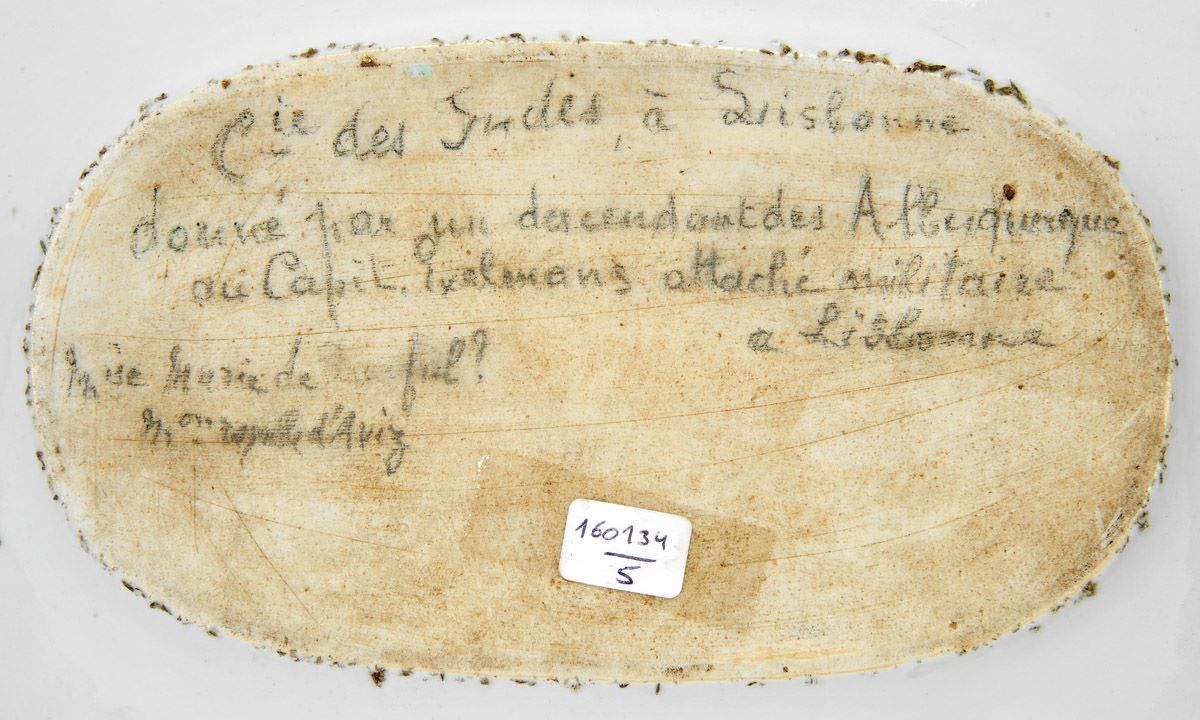 Cie des Indes, à Lisbonne
donné par un descendant des Albuquerque
au Capit. Ixelmans attaché militaire
a Lisbonne
Mise Marie de
Mon d'Aviz
160134
5